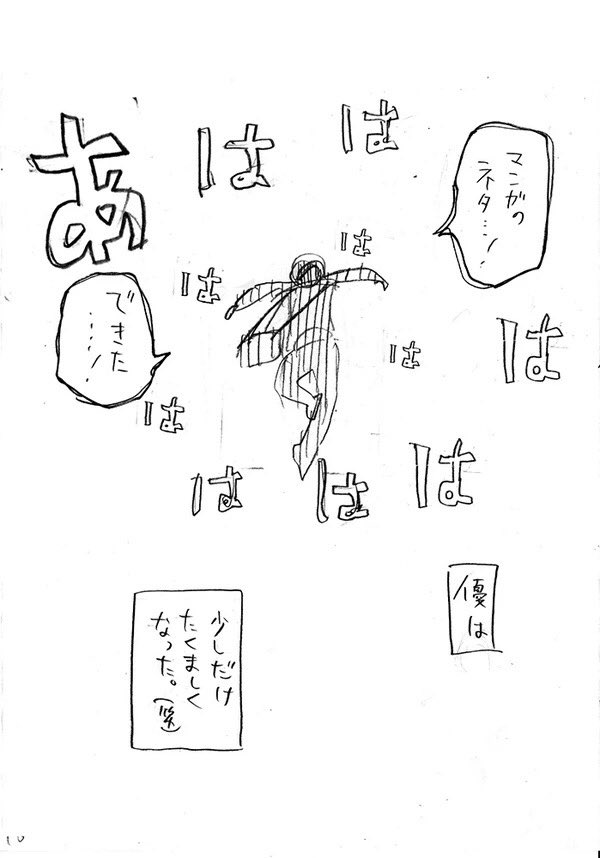 マンガの
ネタ…ッ!
あ
は
は
は
は
は
は
は
は
は
は
できた
……!
優は
少しだけ
たくましく
なった。(笑)
10